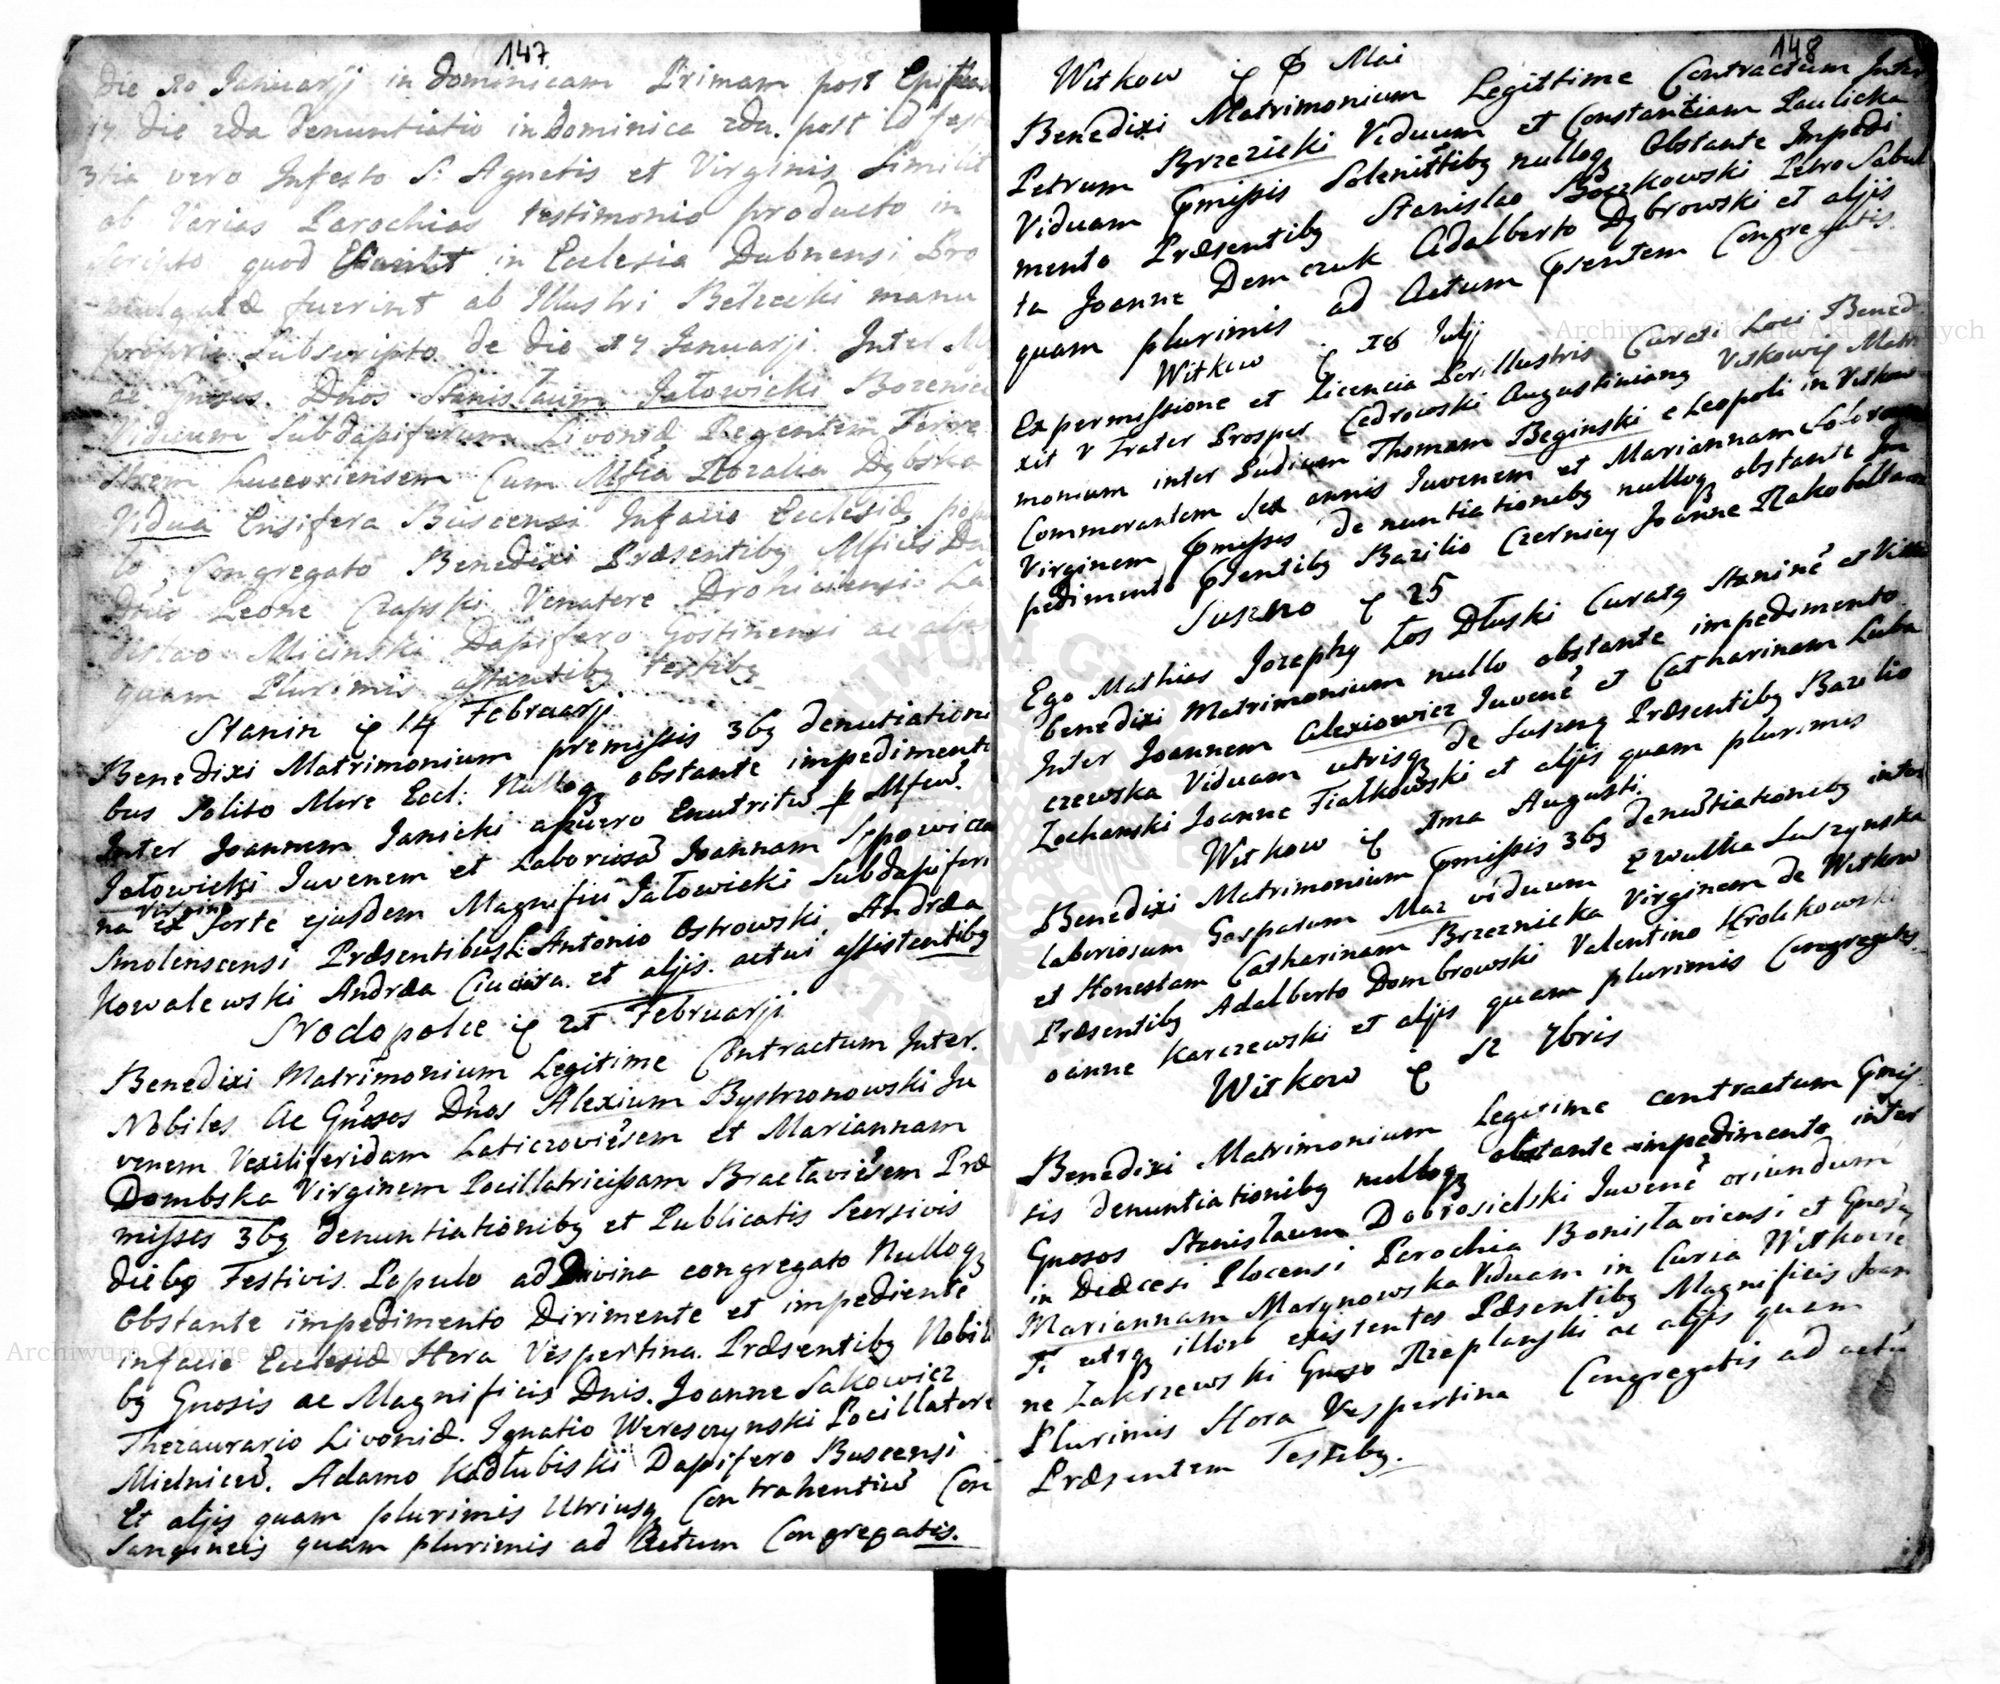 147
die 10 Januarij in Dominicam Primam post Epiphan
17 die 2da denuntiatio in Dominica 2da. post id fest
3tia vero Infesto S: Agnetis et Virginis Similit
ob Varias Parochias testimonio producto in
Scripto quod in Ecclesia Dubnensi Pro
mulgatæ fuerint ab Illustri Betzecki manu
propria Subscripto de die 27 Januarij. Inter
ac Gnosos. Dnos Stanisłaum Jałowicki Bozeniec
Viduum Subdapiferum Livoniæ Regentem
strem Luceoriensem Cum Mfca Rozalia Dąbska
Vidua Ensifera Buscensi Infacie Ecclesiæ popu
lo Congregato Benedixi Præsentibq Mficis
Dnis Leone Czapski Venatore Drohiciensi
dislao Micinski Dapifero Gostinensi ac alijs
quam Plurimis astantibq Testibq
Stanin 14 Februarij
Benedixi Matrimonium premissis 3bq denutiationi
bus Solito More Eccl: Nulloq obstante impedimento
Inter Joannem Janicki apuero Enutritũ p Mfcũ
Jałowicki Iuvenem et Laboriosã Joannam Sypowicza
Virgin
na ex forte ejusdem Magnifici Jałowicki Subdapiferi
Smolenscensi Præsentibus L: Antonio Ostrowski, Andræa
Kowalewski Andræa Ciucura. et alijs. actui assistentibq
Stodopolce 21 Februarij
Benedixi Matrimonium Legitime Contractum Inter.
Nobiles Ac Gnosos Dños Alexium Bystrzonowski Iu
venem Vexiliferidam Laticzoviẽsem et Mariannam
Dombska Virginem Pocillatricissam Bracłaviẽsem Præ
missis 3bq denuntiationibq et Publicatis Scersivis
diebq Festivis. Populo ad Divina congregato Nulloq
Obstante impedimento Dirimente et impediente
infacie Ecclesiæ Hora Vespertina. Præsentibq Nobili
bq Gnosis ac Magnificis Dnis. Joanne Sakowicz
Thezaurario Livoniæ. Ignatio Wereszynski Pocillatore
Mielnicẽ. Adamo Kadłubiski Dapifero Buscensi
Et alijs quam plurimis Utriusq Contrahentiũ Con
sangineis quam plurimis ad Actum Congregatis.
148
Witkow Mai
Benedixi Matrimonium Legittime Contractum Inter
Petrum Brzezicki Viduum et Constantiam Paulicka
Viduam pmissis Solenittibq nulloq Obstante Impedi
mento Præsentibq Stanislao Boczkowski Petro Sabul
ta Joanne Demczuk Adalberto Dąbrowski et alijs
quam plurimis ad Actum psentem Congregatis.
Witkow 18 Julij
Ex permissione et licencia Perillustris Curati Loci Bened
xit V Frater Prosper Cedrowski Augustinianq Vitkowij Matri
monium inter Ludicum Thomam Beginski e Leopoli in Vitkow
Commorantem Sex annis Iuvenem et Mariannam
Virginem pmissis denuntiationibq nulloq obstante Im
pedimento psentibq Bazilio Czerniey Joañe Rakobołtam
Suszno 25
Ego Mathias Jozephq Łos Dłuski Curatq Staninẽ et Vitko
benedixi Matrimonium nullo obstante impedimento
Inter Joannem Alexiowicz Iuvenẽ et Catharinam Luba
czewska Viduam utrisq de Suszny Præsentibq Bazilio
Zochanski Joanne Fialkowski et alijs quam plurimis
Witkow 1ma Augusti.
Benedixi Matrimonium pmissis 3bq denũtiationibq inter
laboriosum Gasparum Maz viduum Zwulka Suszynska
et Honestam Catharinam Brzeznicka Virginem de Witkow
Præsentibq Adalberto Dombrowski Valentino Krolikowski
oanne Karczewski et alijs quam plurimis Congregatis.
Witkow 12 7bris
Benedixi Matrimonium Legitime contractum pmis
sis denuntiationibq nulloq obstante impedimento inter
Gnosos Stanisłaum Dobrosielski Iuvenẽ oriundum
in Diæcesi Plocensi Parochia Bonisłaviensi et Gnosã
Mariannam Marynowska Viduam in Curia Witkovie
si utrq illor existentes Præsentibq Magnificis Joan
ne Zakrzewski Gnoso Rzeplanski ac alijs quam
Plurimis Hora Vespertina Congregatis ad actũ
Præsentem Testibq.